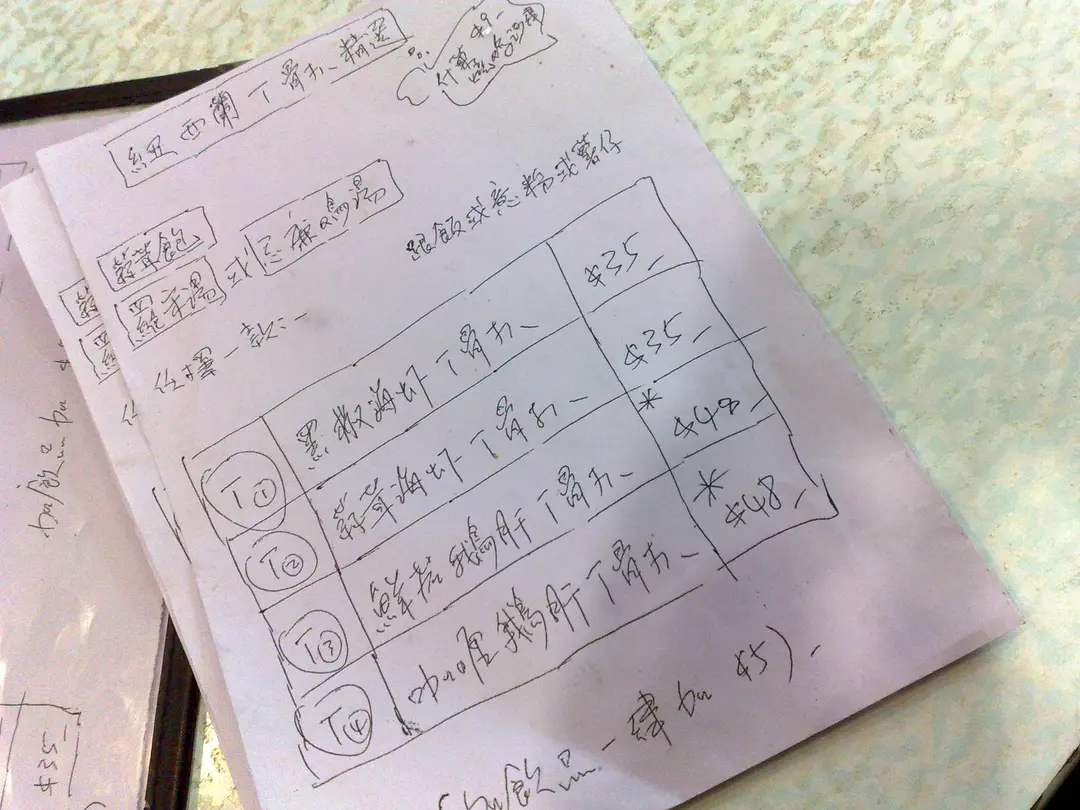 紐西蘭丁骨扒精選
蒜茸飽
羅宋湯 或 忌廉湯
跟飯或意粉或薯仔
任擇一款:-
T① 黑椒海虾丁骨扒 $35_
T② 蒜茸海虾丁骨扒 $35_
T③ 鮮茄鵝肝丁骨扒 * $48_
T④ 咖喱鵝肝丁骨扒 * $48_
加飲品一律加 $5)
加飲品加
$35_